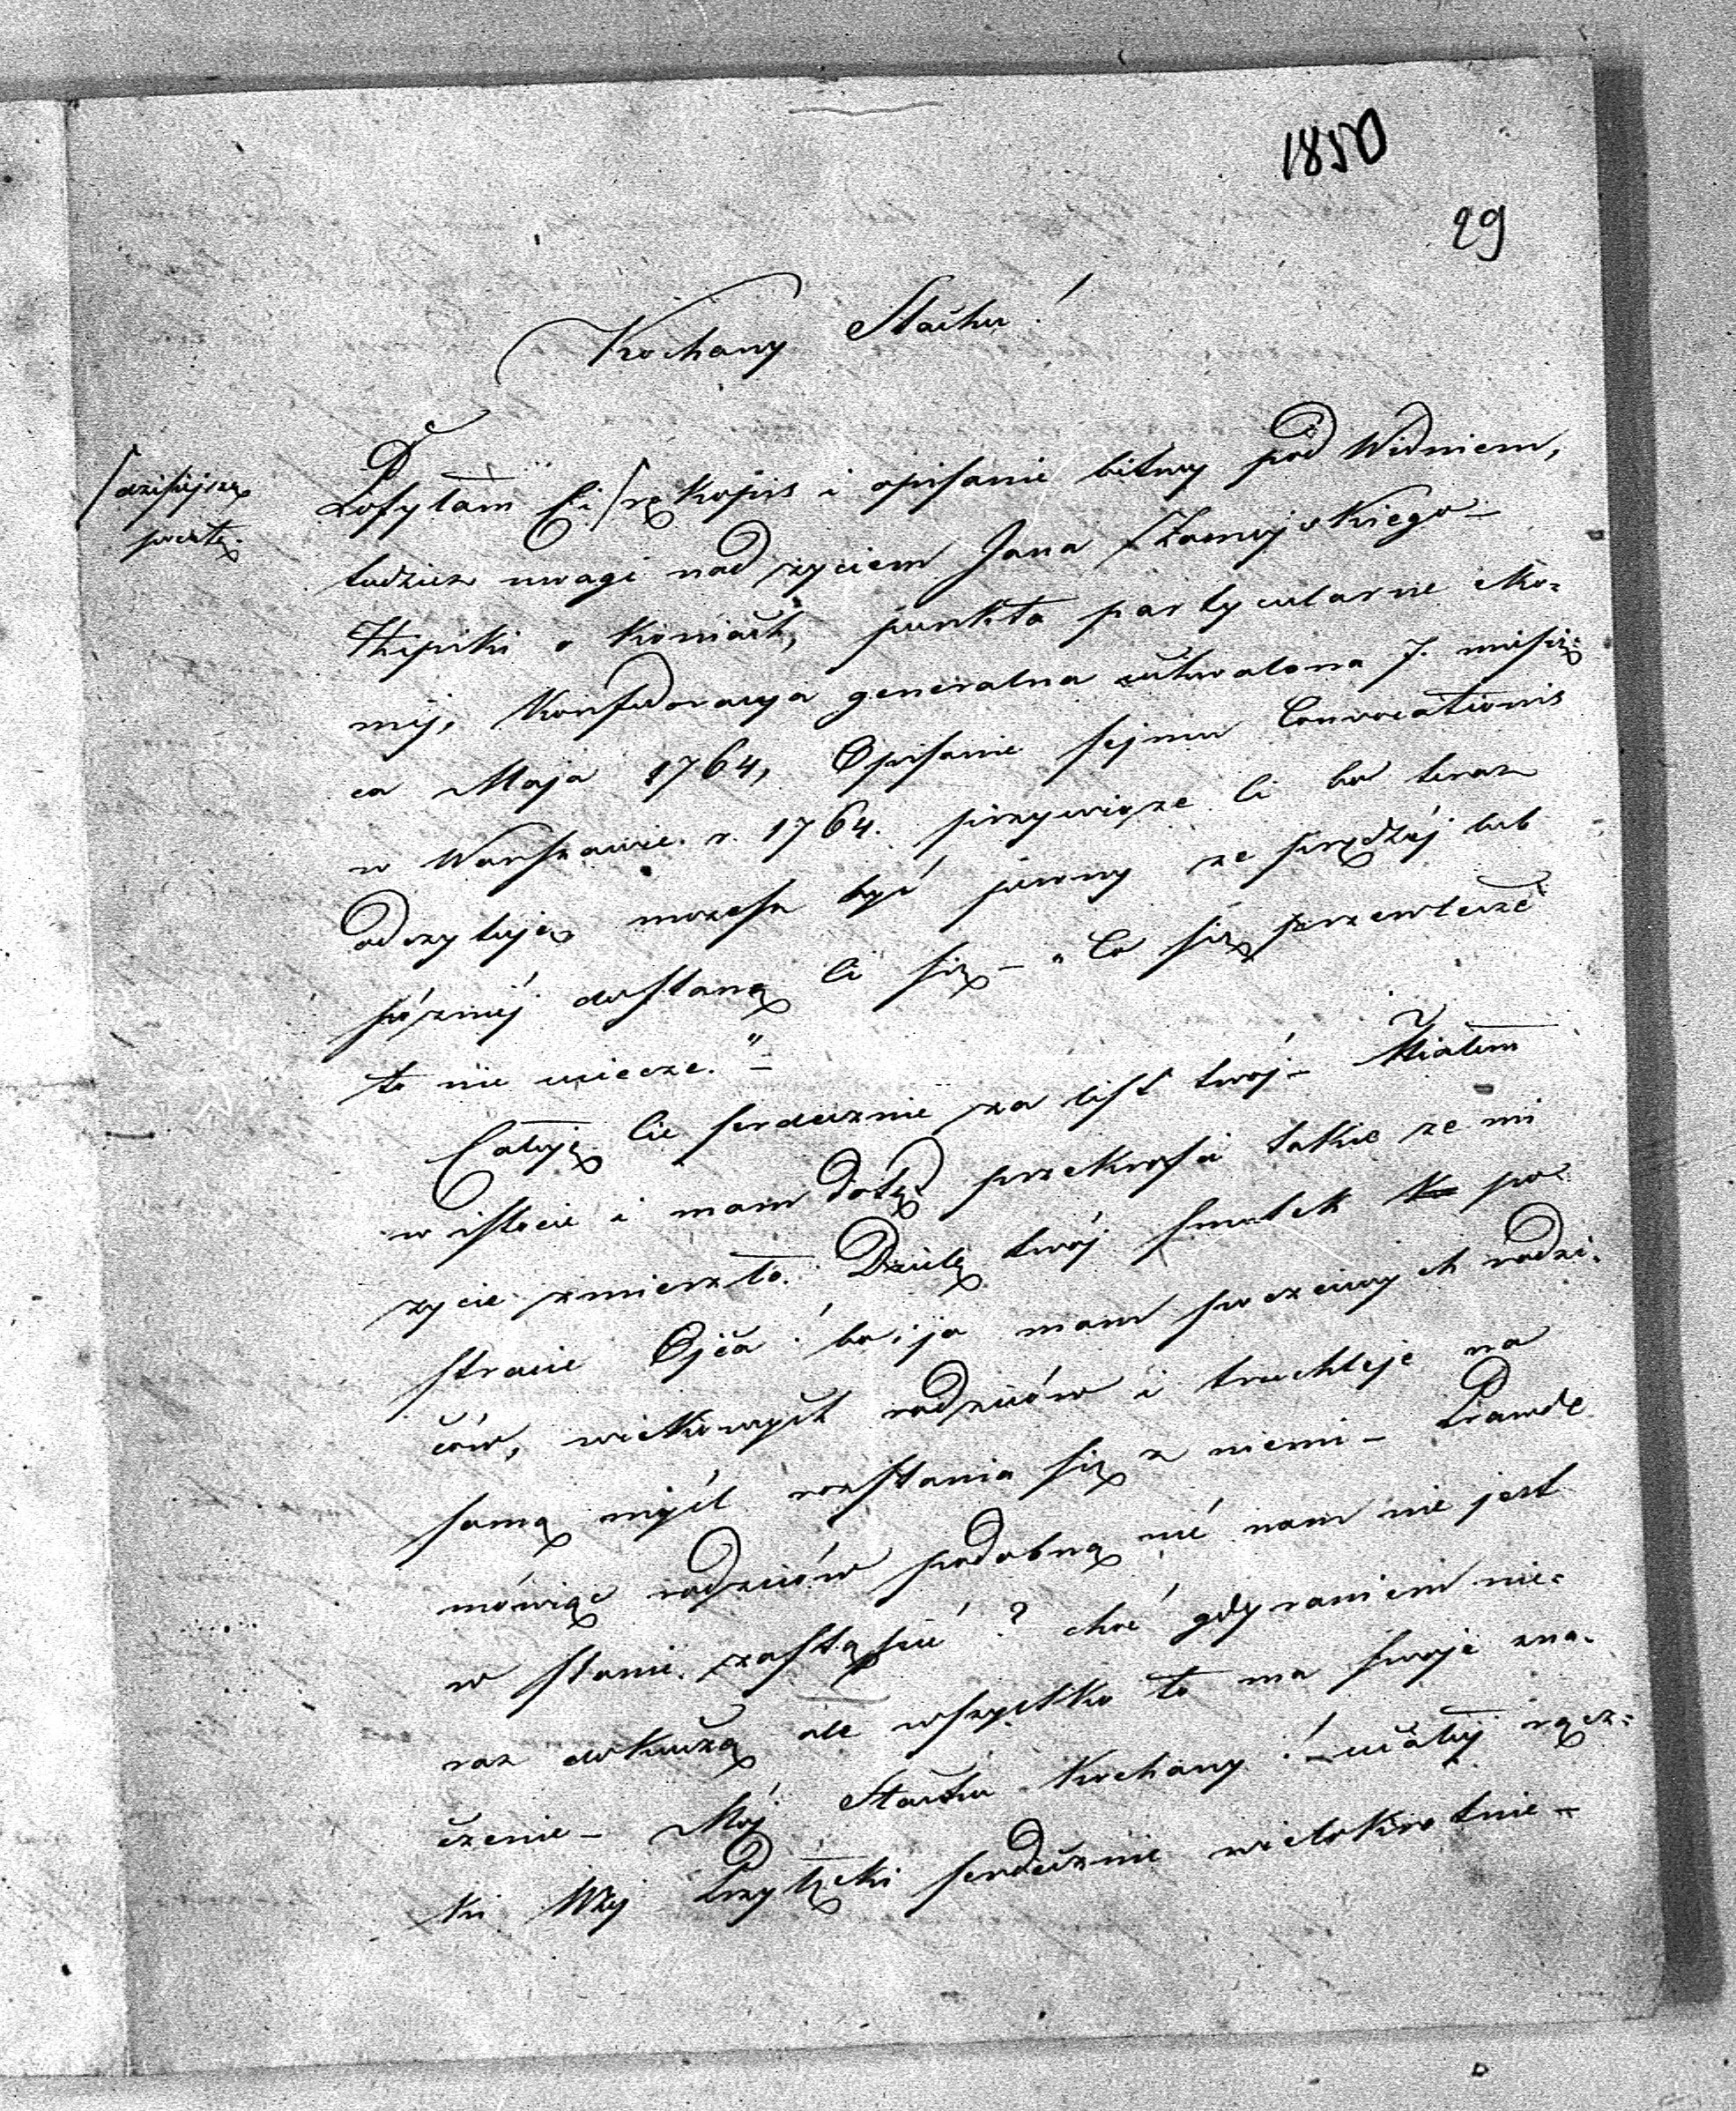 1850
29
Kochany Stachu!
dzisiejszą
pocztą.
Posyłam Ci rękopis i opisanie bitwy pod Widniem,
tudzież uwagi nad życiem Jana Zamojskiego –
Zapiski o koniach, punkta partycularne
Konfederacyja generalna uchwalona 7. miesią-
ca Maja 1764, Opisanie sejmu Convocationis
w Warszawie. r. 1764. przywiozę Ci bo teraz
odczytuję możesz być pewny ze prędzéj lub
póżniéj dostaną Ci się – "Co się przewlecze
to nie uciecze." –
Całuję Cie serdecznie za list twój – Miałem
w istocie i mam dotąd takie ze mi
życie zmierzło. Dzielę twój smutek po
stracie Ojca! bo i ja mam poczciwych rodzi-
ców, wiekowych rodziców i truchleję na
samą myśl rozstania się z niemi – Prawdę
mówiąc rodziców podobną nić nam nie jest
w stanie zastąpić? choć gdyraniem nie-
raz dokuczą ale wszystko to ma swoje zna-
czenie – Mój Stachu kochany! – ucałuj rącz-
ki Wżj serdecznie wielokrotnie –